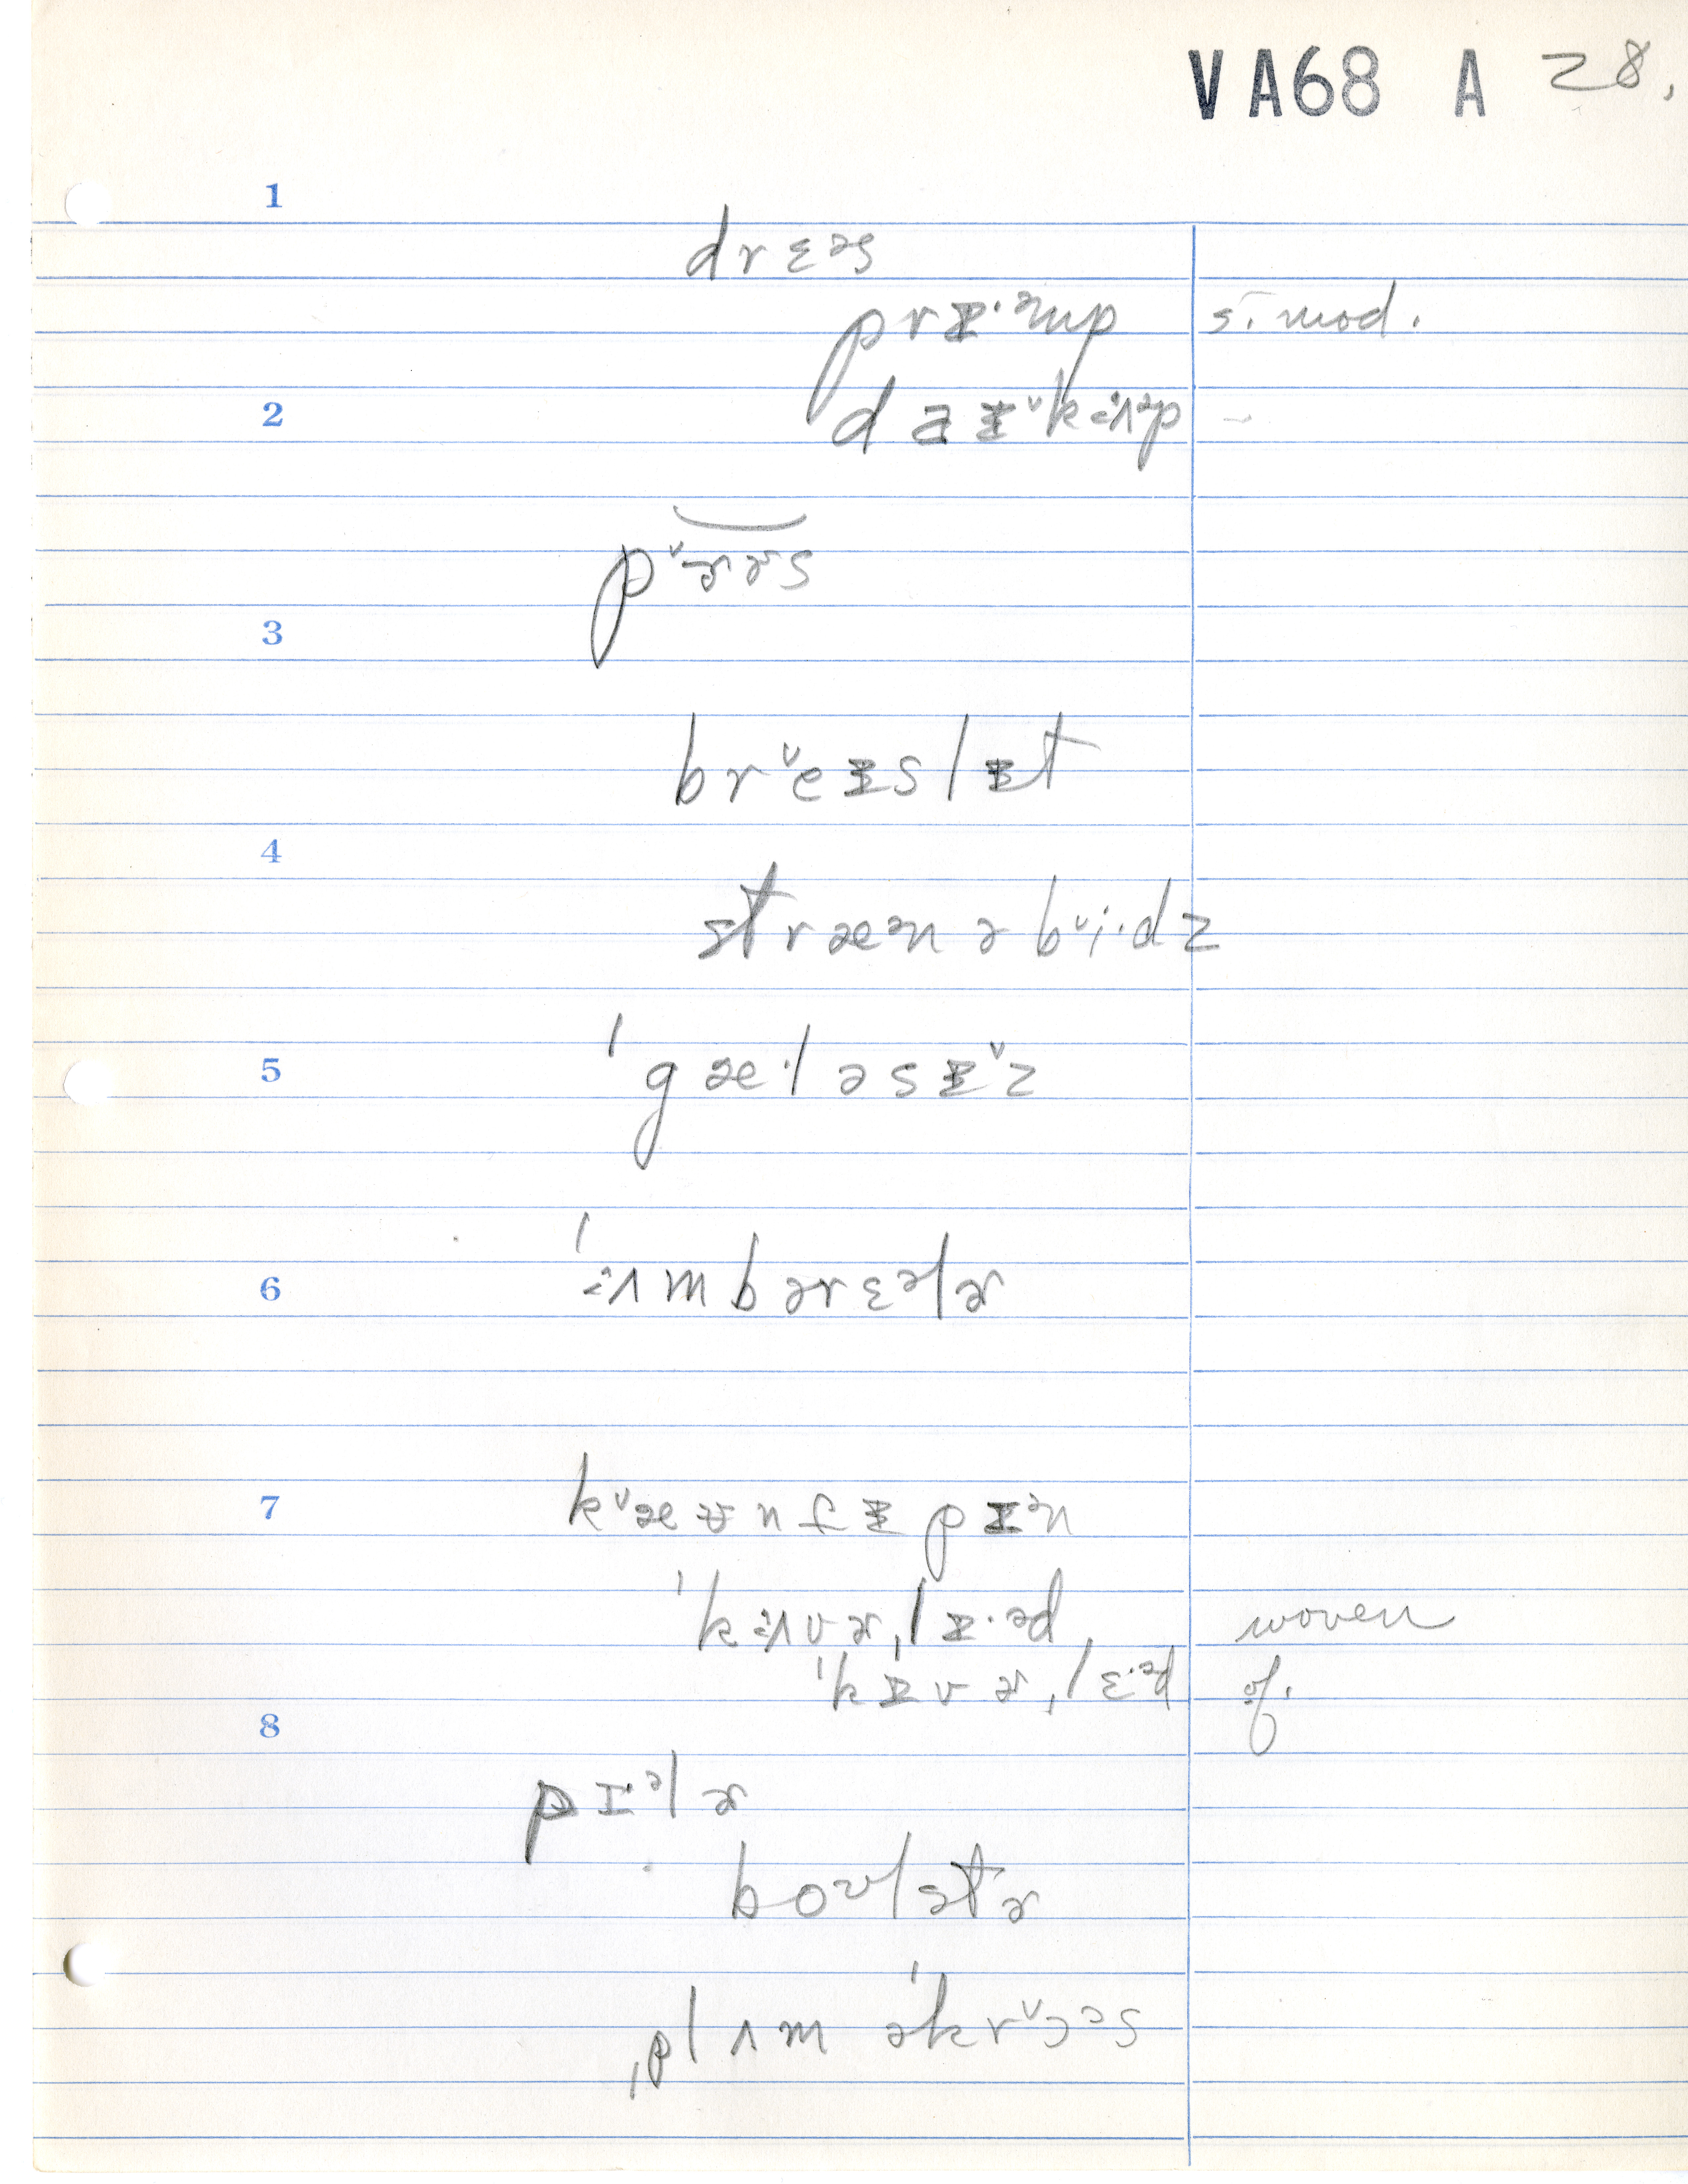 VA68 A 28.
1
drɛəs
prɪ̵·əmp s. mod.
2
dɪ̵k
pᵛɚɚs
3
brᵛeɪ̵slɪ̵t
4
stræᵊn ə bᵛi·dz
5
ˈgæ·ləsɪ̵ᵛz
6
ˈɜʌmbərɛᵊlɚ
7
kᵛæʊ̵nfɪ̵pɪ̵ᵊn
ˈkɜʌvɚˌlɪ̵·əd woven
ˈkɪ̵vɚˌlɛ·ᵊd of.
8
pɪ·ᵊlɚ
boʊlstɚ
ˌplʌm əˈkrᵛɔəs